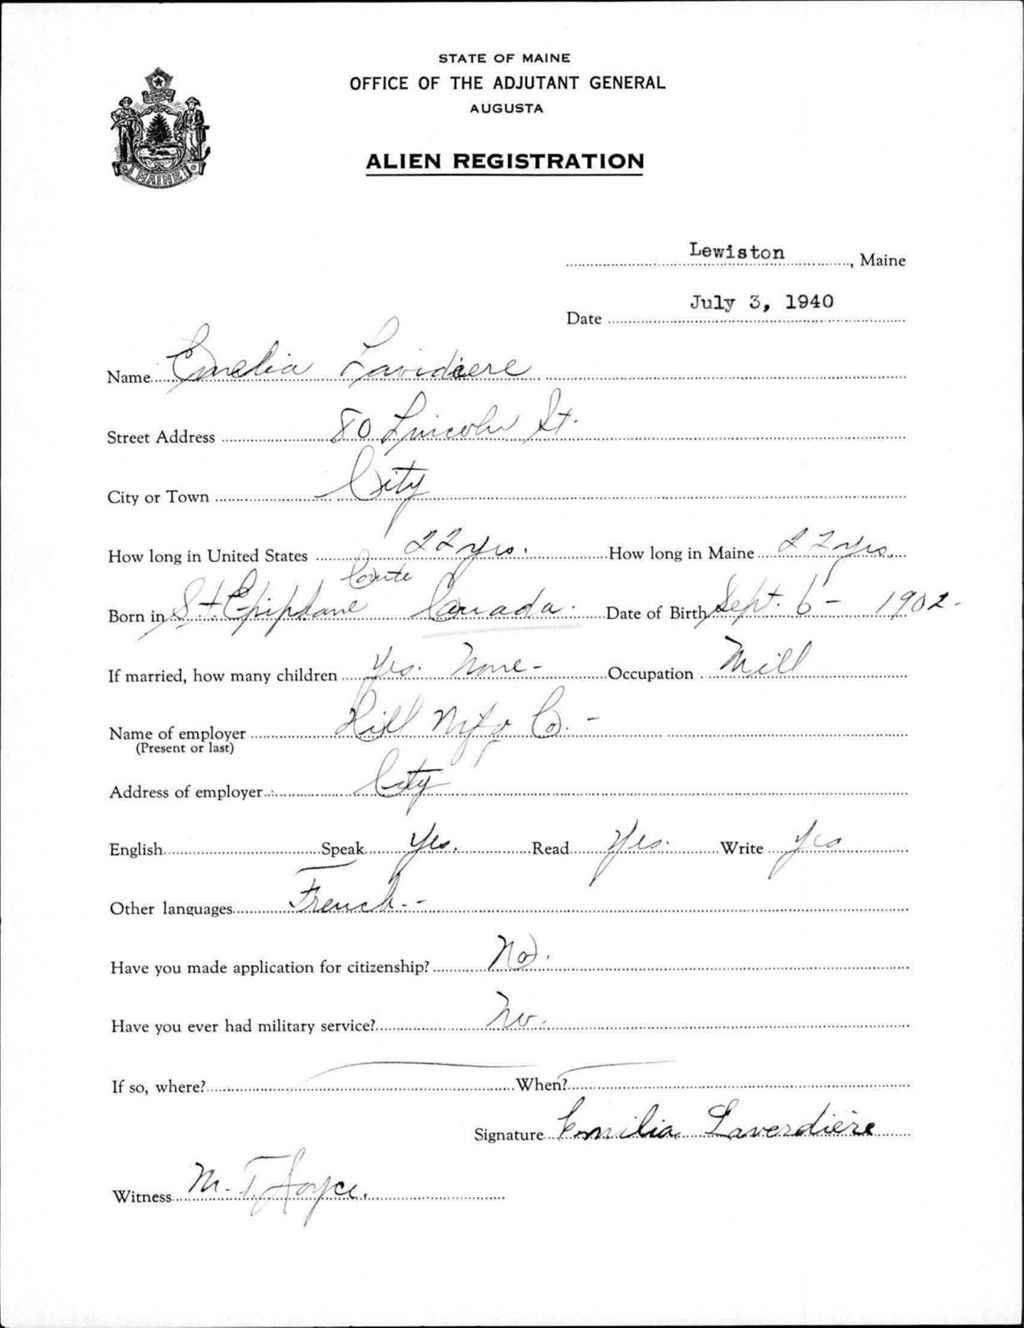 STATE OF MAINE
OFFICE OF THE ADJUTANT GENERAL
AUGUSTA
ALIEN REGISTRATION
MAINE
Lewiston, Maine
Date July 3, 1940
Name Emelia Lavidiere
Street Address 80 Lincoln St.
City or Town City
How long in United States 22 yrs. How long in Maine 22 yrs
Born in St. Epiphane Canada. Date of Birth Sept. 6 - 1902.
If married, how many children Yes. None - Occupation Mill
Name of employer Hill Mfg Co. -
(Present or last)
Address of employer City
English Speak Yes. Read Yes. Write Yes
Other languages French - -
Have you made application for citizenship? No.
Have you ever had military service? No.
If so, where? When?
Signature Emilia Laverdière
Witness M. T. Joyce.